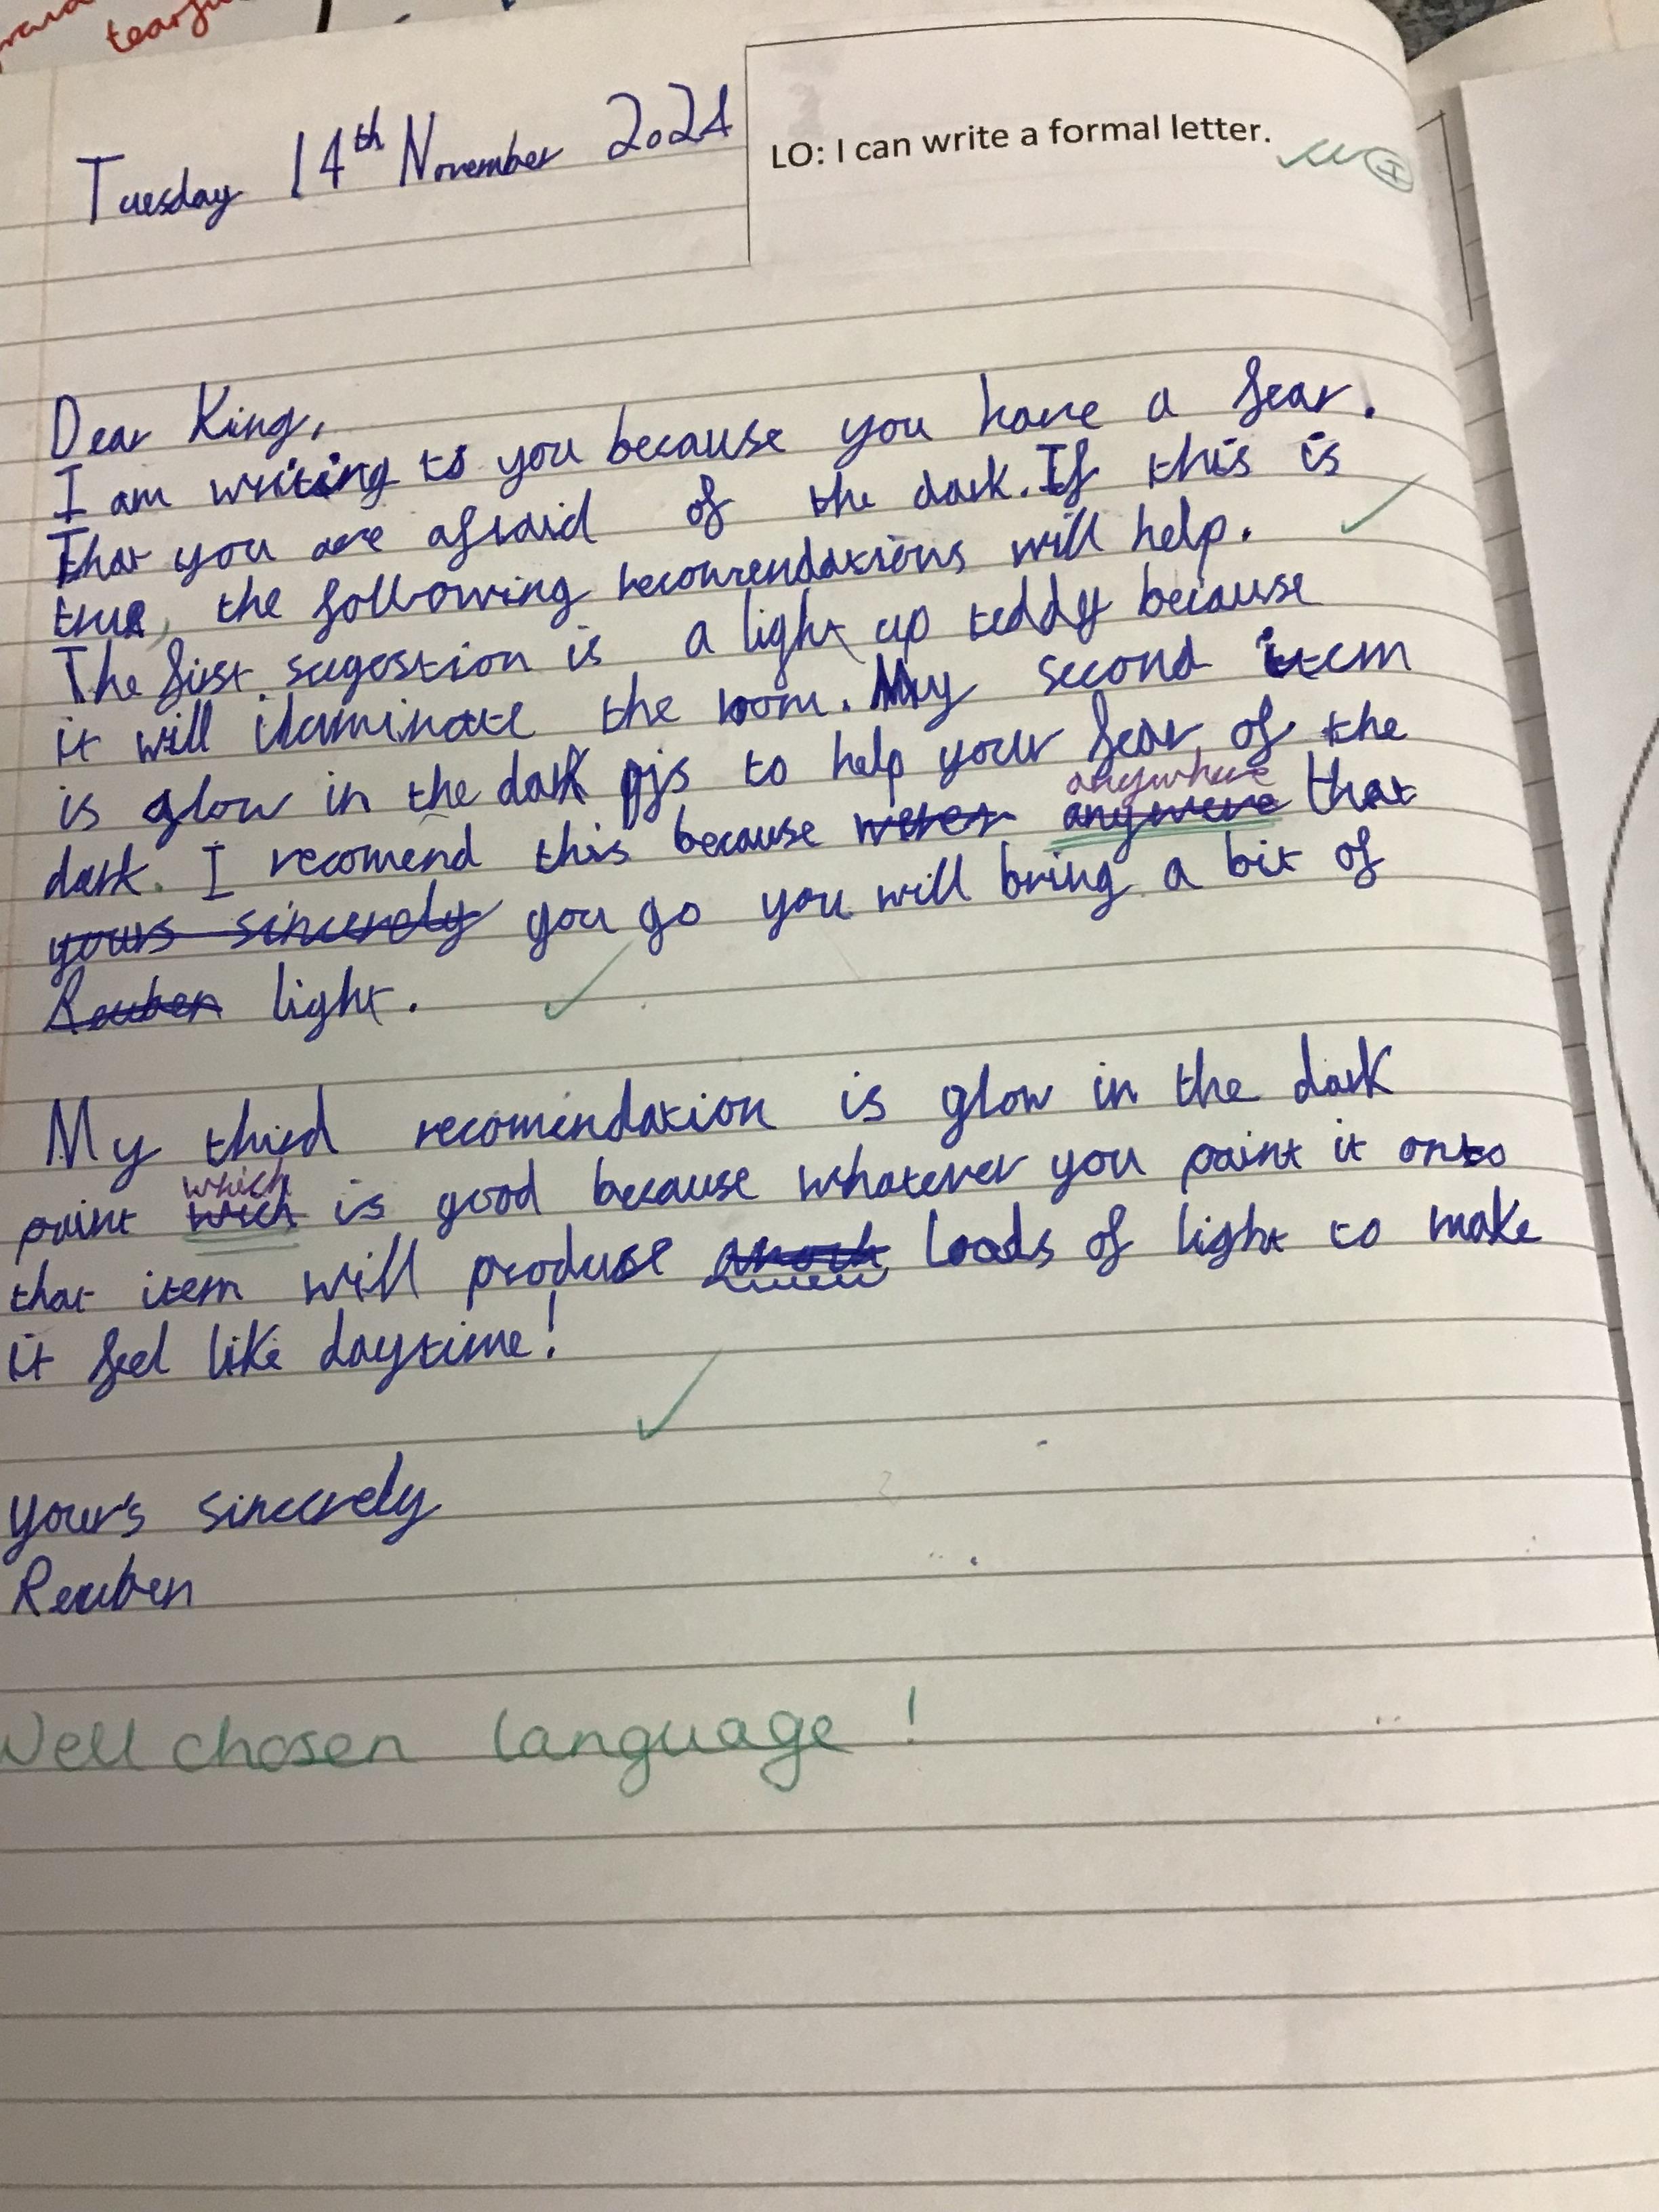 tearfu
Tuesday 14th November 2024
LO: I can write a formal letter.
Dear King,
I am writing to you because you have a fear.
That you are afraid of the dark. If this is
true, the following recomendations will help.
The first sugestion is a light up teddy because
it will iluminate the room. My second item
is glow in the dark pjs to help your fear of the
anywhere
dark. I recomend this because anywere that
yours sincerely you go you will bring a bit of
Reuben light.
My third recomendation is glow in the dark
which
paint wich is good because whatever you paint it onto
that item will produse loads of light to make
it feel like daytime!
your's sincerely
Reuben
Well chosen language!